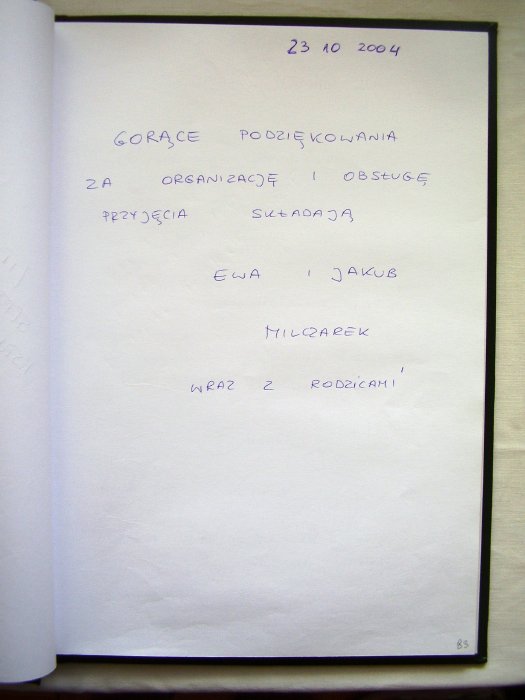 23 10 2004
GORĄCE PODZIĘKOWANIA
ZA ORGANIZACJĘ I OBSŁUGĘ
PRZYJĘCIA SKŁADAJĄ
EWA I JAKUB
MILCZAREK
WRAZ Z RODZICAMI